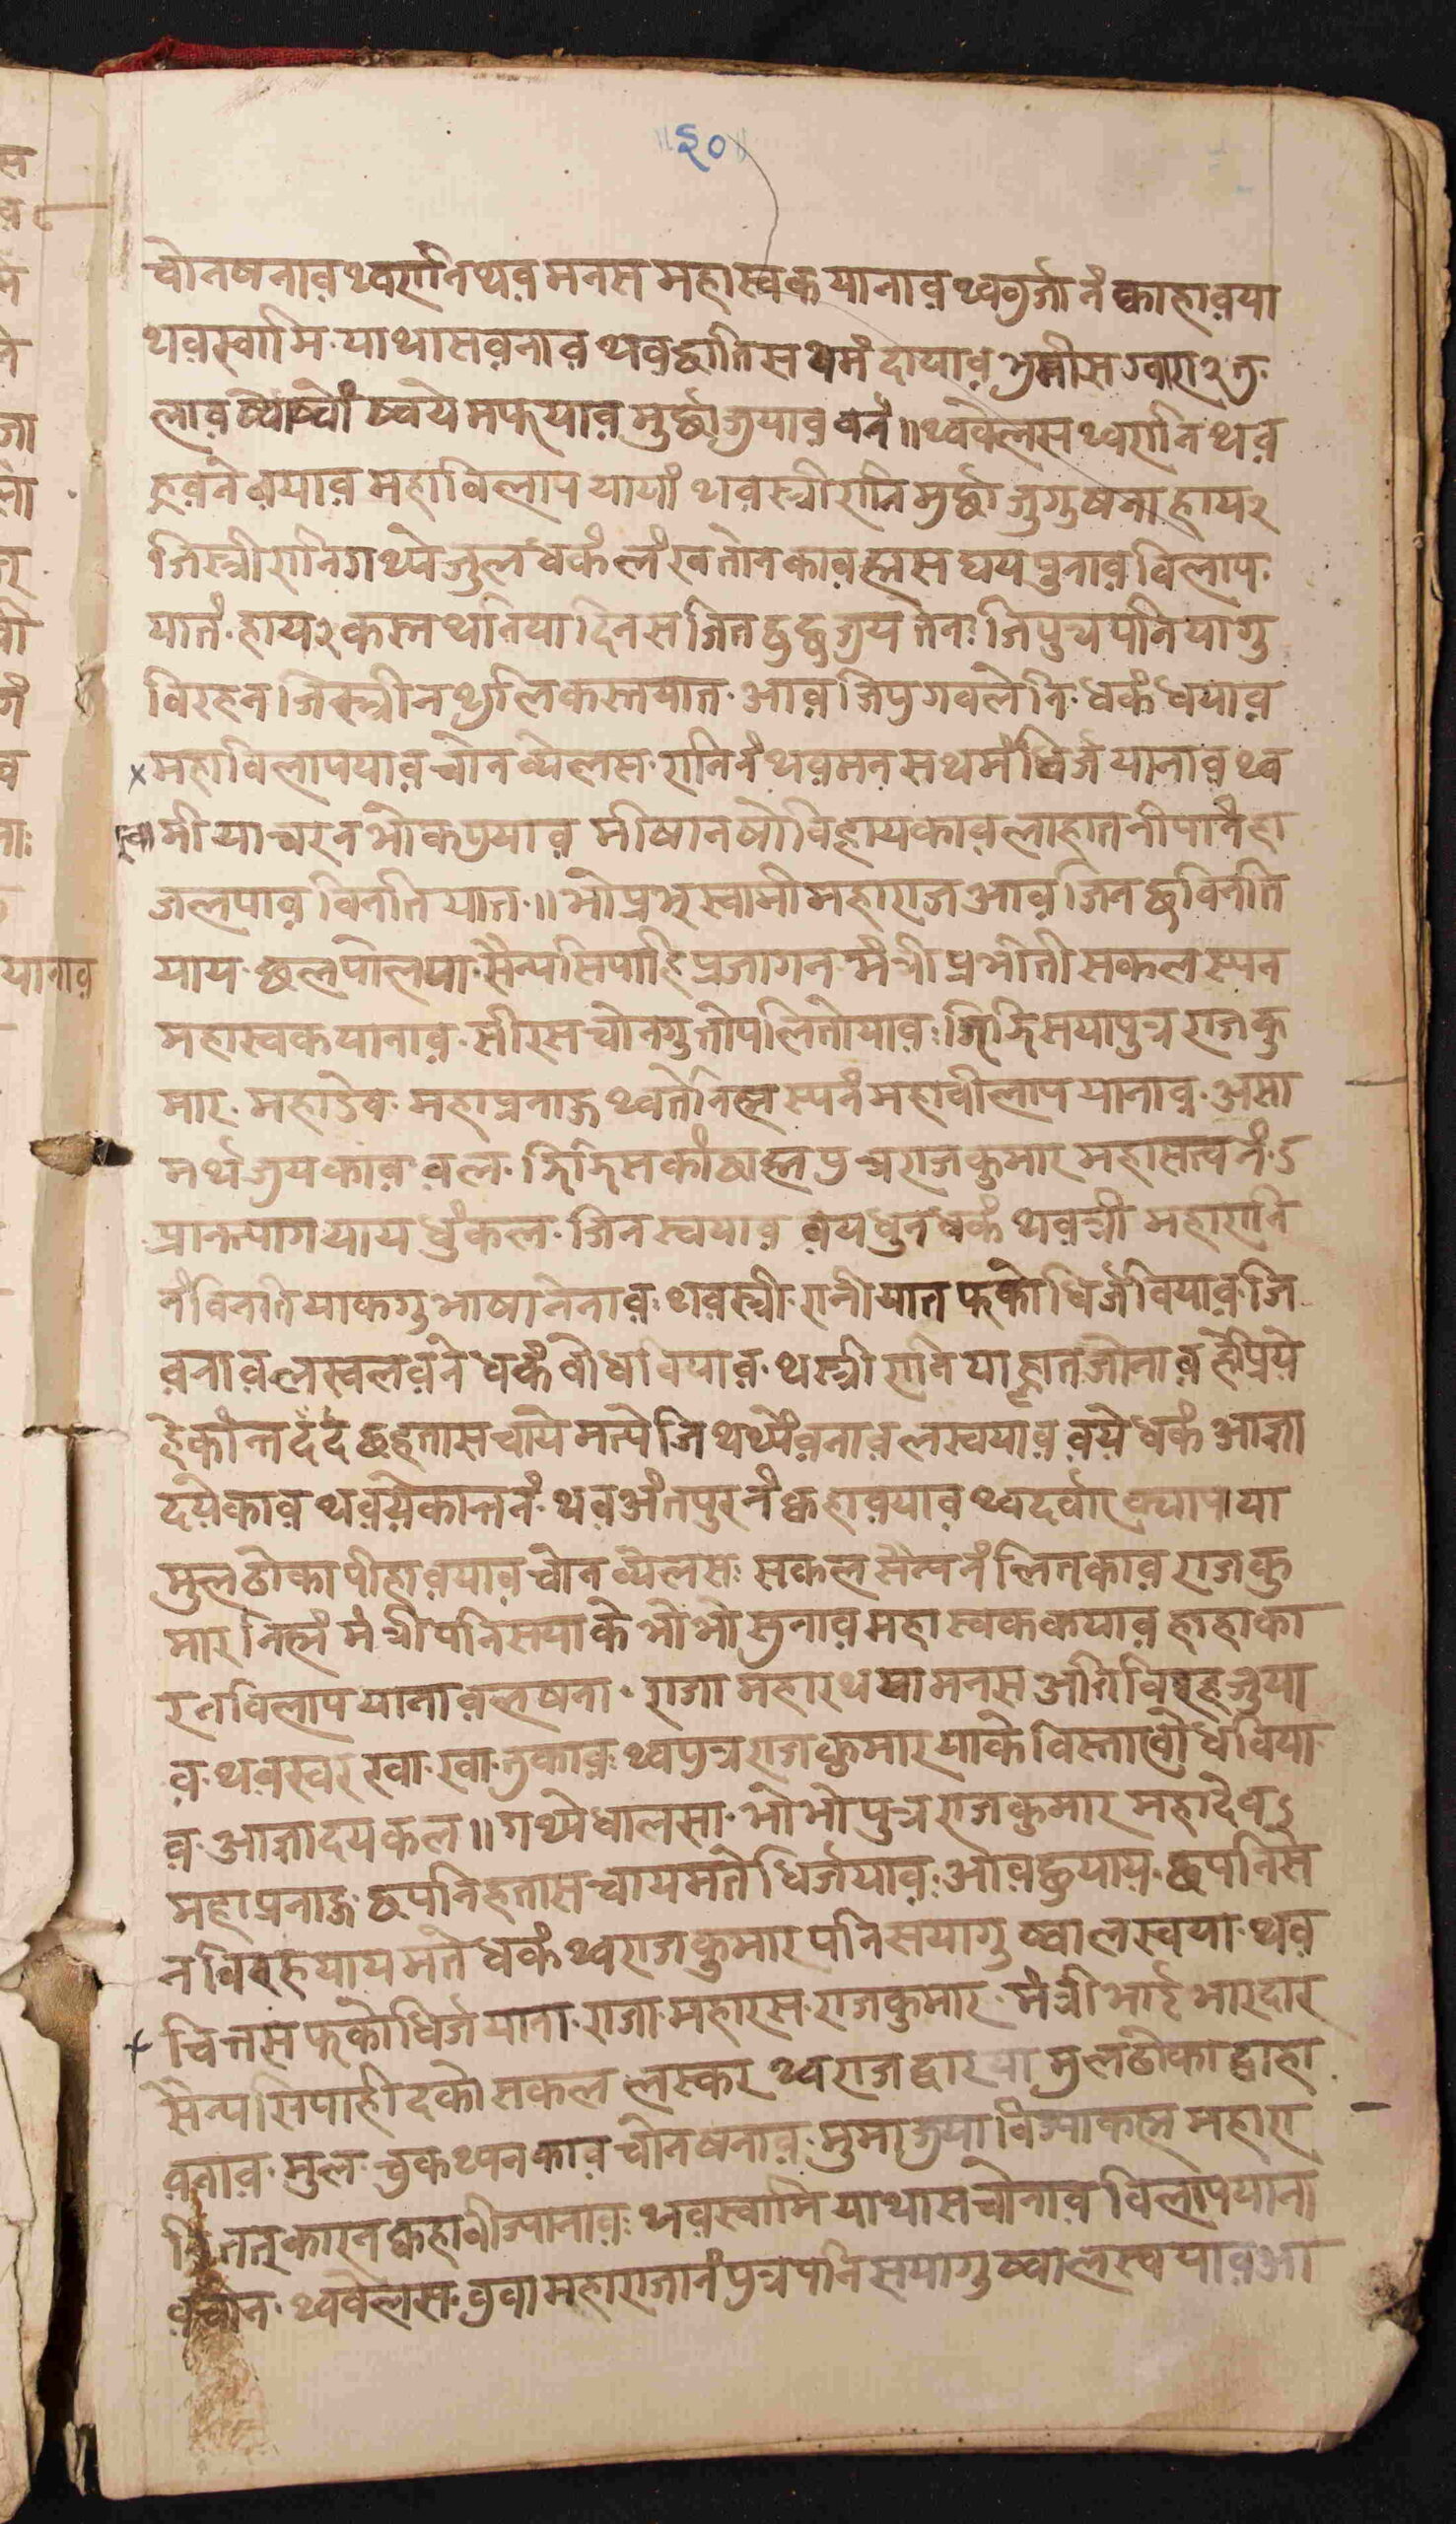 ॥३०॥
चोनषनाव थ्वरानि थव मनस महास्वक यानाव थ्व जानं क्वाहावया
थवस्वामि याथासवनाव थवद्धातिस थमं दायाव भुमीस ग्वारा२तु
लाव ष्वयेमफयाव मुर्छा जुयाव वनं॥ थ्ववेलस थ्वरानि थव
ह्रवने वयाव महाविलाप यायां थवस्त्रीरानि मुर्छा जुगुषना हाय२
जिस्त्रीरानि गथ्ये जुल धकं लंखतोनकाव ह्मस घयपुनाव विलाप
यातं हाय२ कस्त थनियादिनस जित दुदु जुय तेन जिपुत्रपनियागु
विरहन जिस्त्रीन थुलि कस्तयात आव जिपु गवलेनि धकं धयाव
महाविलापयाव चोन व्येलस रानिनं थवमनस थमं धिर्जयानाव थ्व
स्वामीया चरन भोकपुयाव मीषानषोविहायकाव लाहातनीपानं हा
जलपाव विनति यात॥ भोप्रभुस्वामी महाराज आव जिन छु विनति
याय छलपोलया सैन्य सिपाहि प्रजागन मंत्री प्रभीती सकल स्पन
महास्वक यानाव सीरस चोनगु तोपलितोयाव जिजिमयापुत्र राजकु
मार महादेव महाप्रनाद थ्वतेनिह्म स्पनं महावीलाप यानाव असा
मर्थ जुयकाव वल जिजिमकांछाह्म पुत्रराजकुमार महासत्वनं ऽ
प्रानत्याग याय धुंकल जिन स्वयाव वयधुन धकं थवस्त्री महारानि
नं विनति याकगु भाषानेनाव थवस्त्री रानीयात फको धिर्ज वियाव जि
वनाव लस्वलवने धकं वोधवियाव थस्त्री रानिया ह्रात जोनाव हेप्रिये
हेकांन्त दं दं छ हतास चाये मत्ये जि थथ्यें वनाव लस्वयाव वये धकं आज्ञा
दयेकाव थवयेकान्तनं थवअंतपुरनं क्वहावयाव थ्व दर्वार क्यापया
मुलढोका पीहावयाव चोन व्येलस सकल सैन्यनं लितकाव राजकु
मार निह्मं मंत्रीपनिसयाके भोभो सुनाव महास्वककयाव हाहाका
रन विलाप यानाव लषना राजा महारथया मनस अति विरह जुया
व थवस्वर स्वा स्वा तुकाव थ्वपुत्र राजकुमारयाके विस्तार वोधविया
व आज्ञादयकल॥ गथ्ये धालसा भोभो पुत्र राजकुमार महादेव ऽ
महाप्रनाद छपनि हतास चायमते धिर्जयाव आव छुयाय छपनिसे
न विरहयायमते धकं थ्वराजकुमारपनिसयागु ष्वाल स्वया थव
चित्तस फको धिर्ज याना राजा महारस राजकुमार मंत्री भाई भारदार
सैन्य सिपाही दको सकल लस्कर थ्व राजद्वारया मुलढोका द्वाहा
वनाव मुल चुकथ्यनकाव चोन षनाव मुमाजुया विज्याकह्म महारा
कारन क्वहावीज्यानाव थवस्वामि याथासचोनाव विलापयाना
व चोन थ्ववेलस वुवामहाराजानं पुत्रपनिसयागु ष्वाल स्वयाव आ